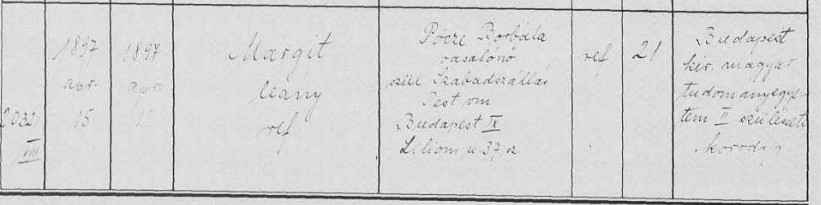 2032
VIII
1897
apr.
15
1897
apr.
Margit
leány
ref
Pócze Borbála
vasalónő
szül Szabadszállás
Pest vm
Budapest IX
Liliom u 37 sz
ref
21
Budapest
kir. magyar
tudományegye
tem II szülészeti
korodája